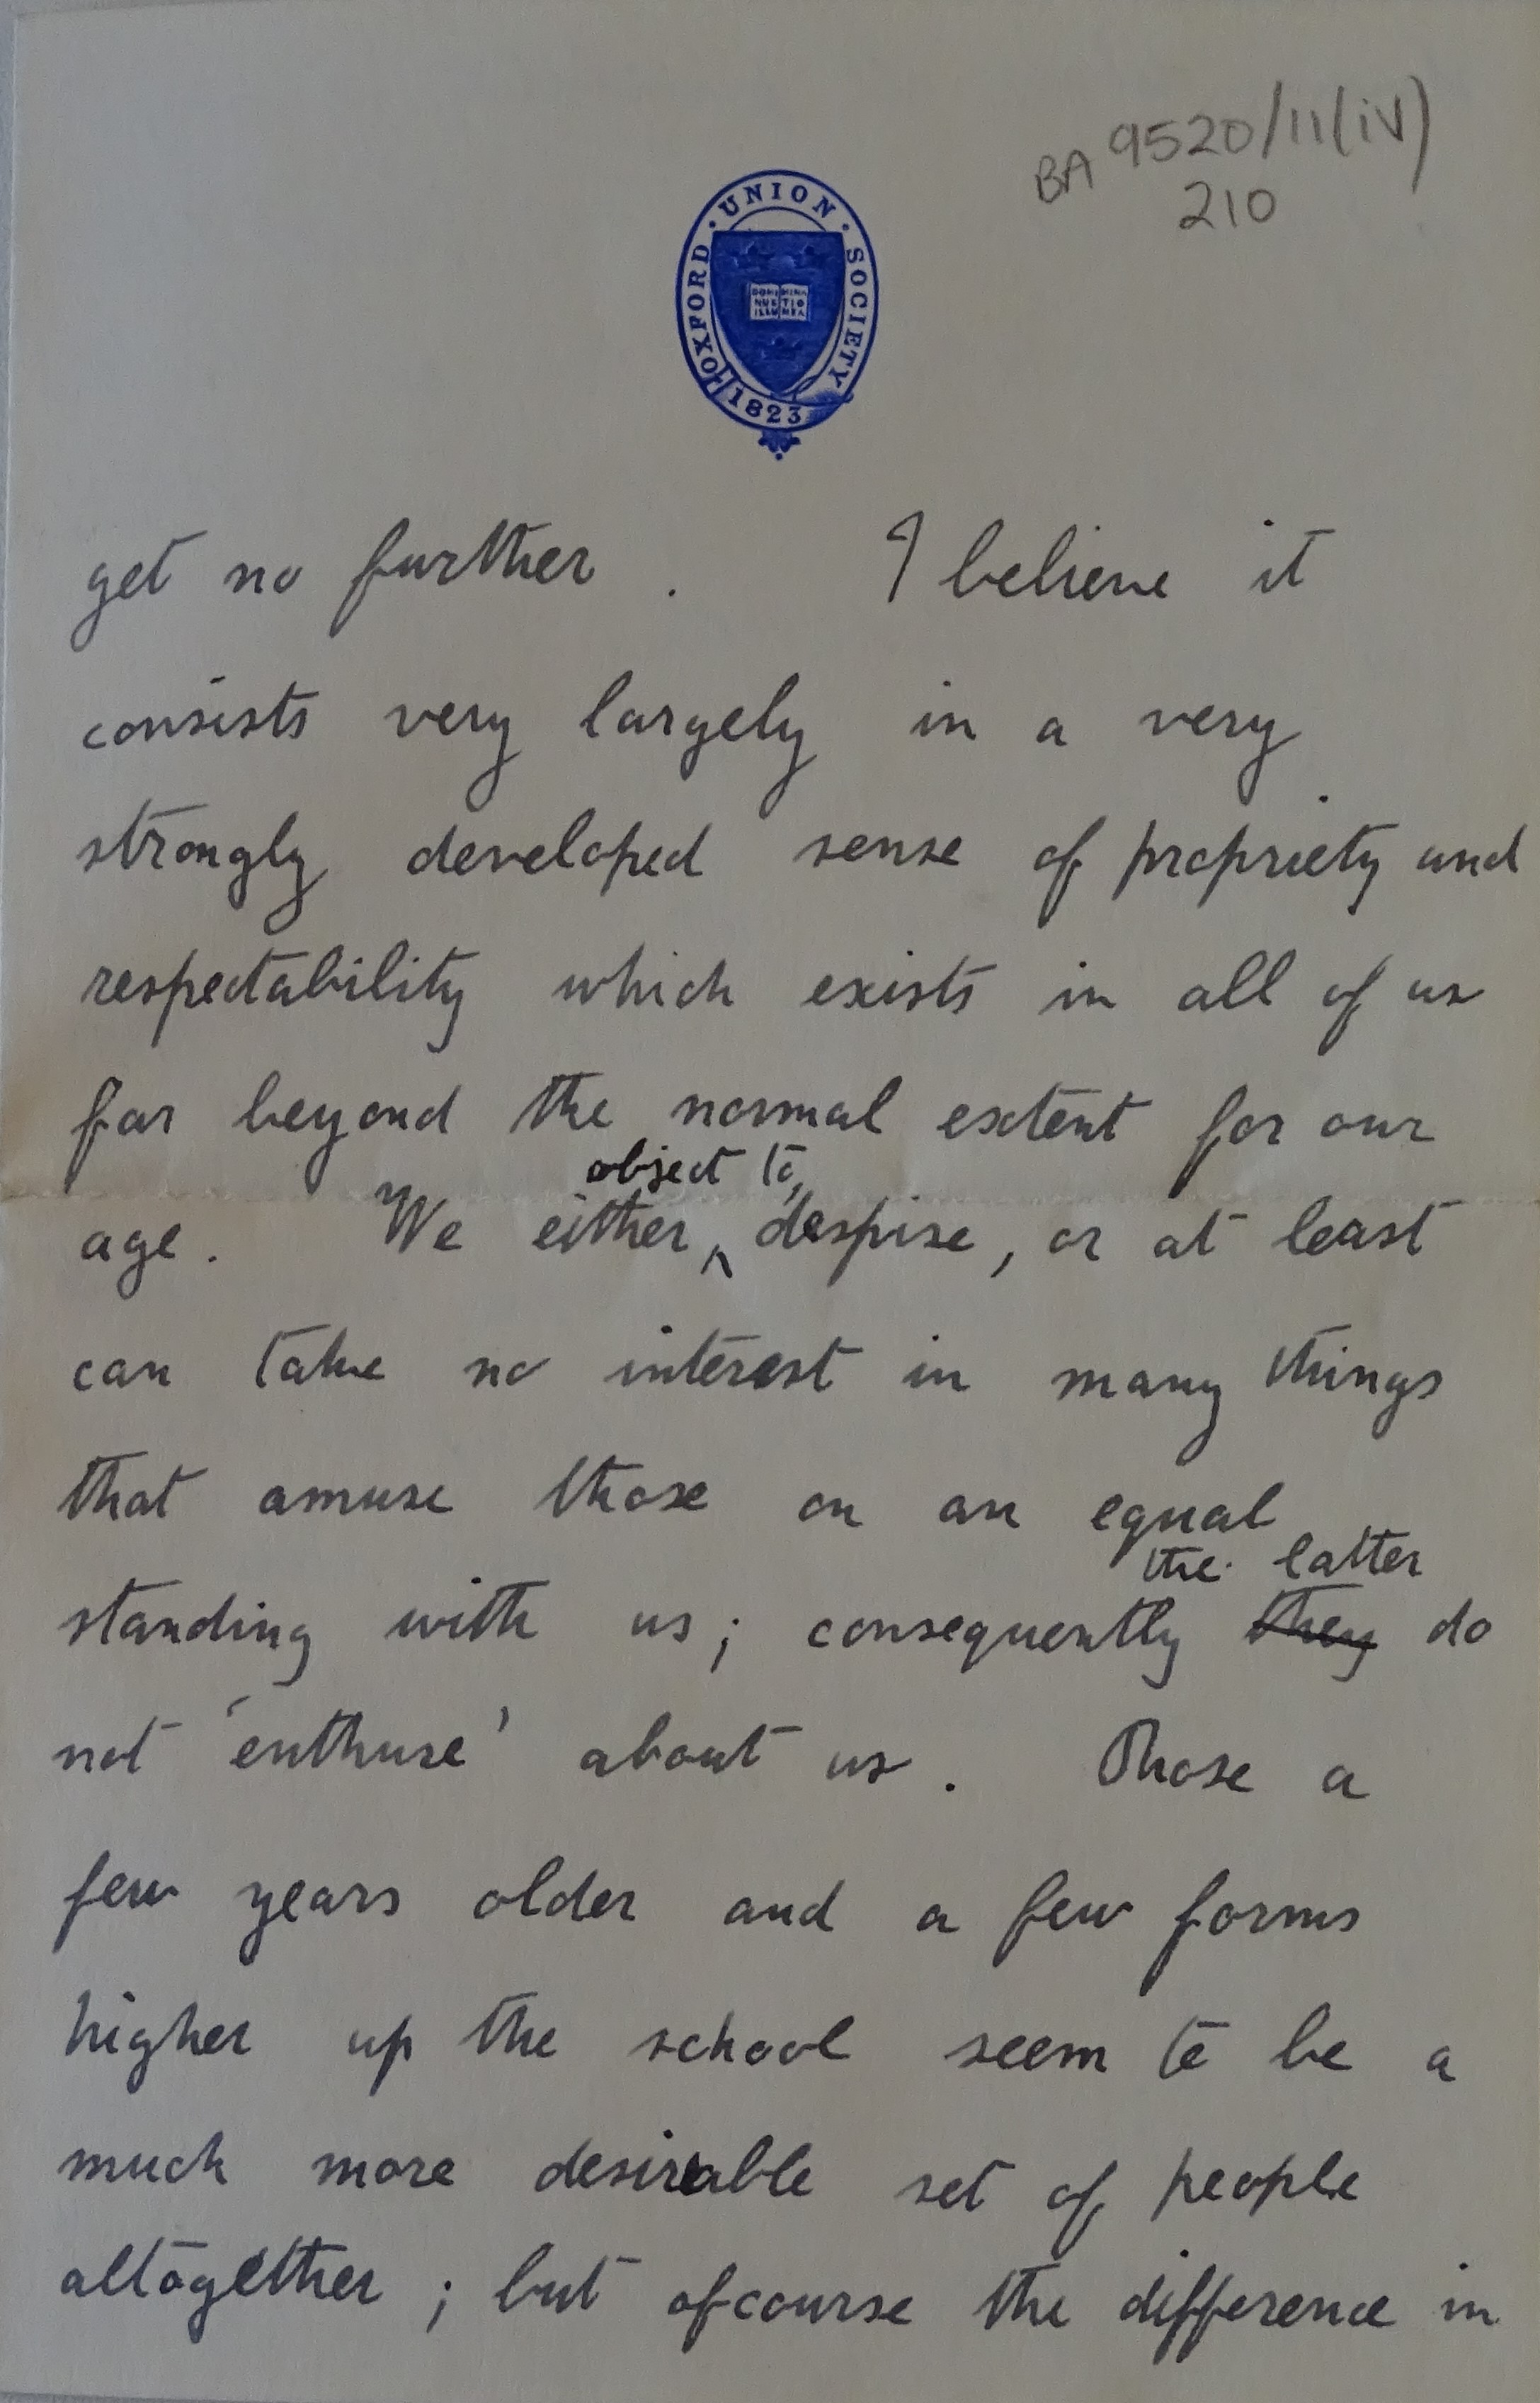 BA 9520/11(iv)
210
OXFORD · UNION · SOCIETY
DOMI MINA
NUS TIO
ILLU MEA
1823
get no further . I believe it
consists very largely in a very
strongly developed sense of propriety and
respectability which exists in all of us
far beyond the normal extent for our
object to,
age . We either ^ despise , or at least
can take no interest in many things
that amuse those on an equal
the latter
standing with us ; consequently they do
not 'enthuse' about us . Those a
few years older and a few forms
higher up the school seem to be a
much more desirable set of people
altogether ; but ofcourse the difference in